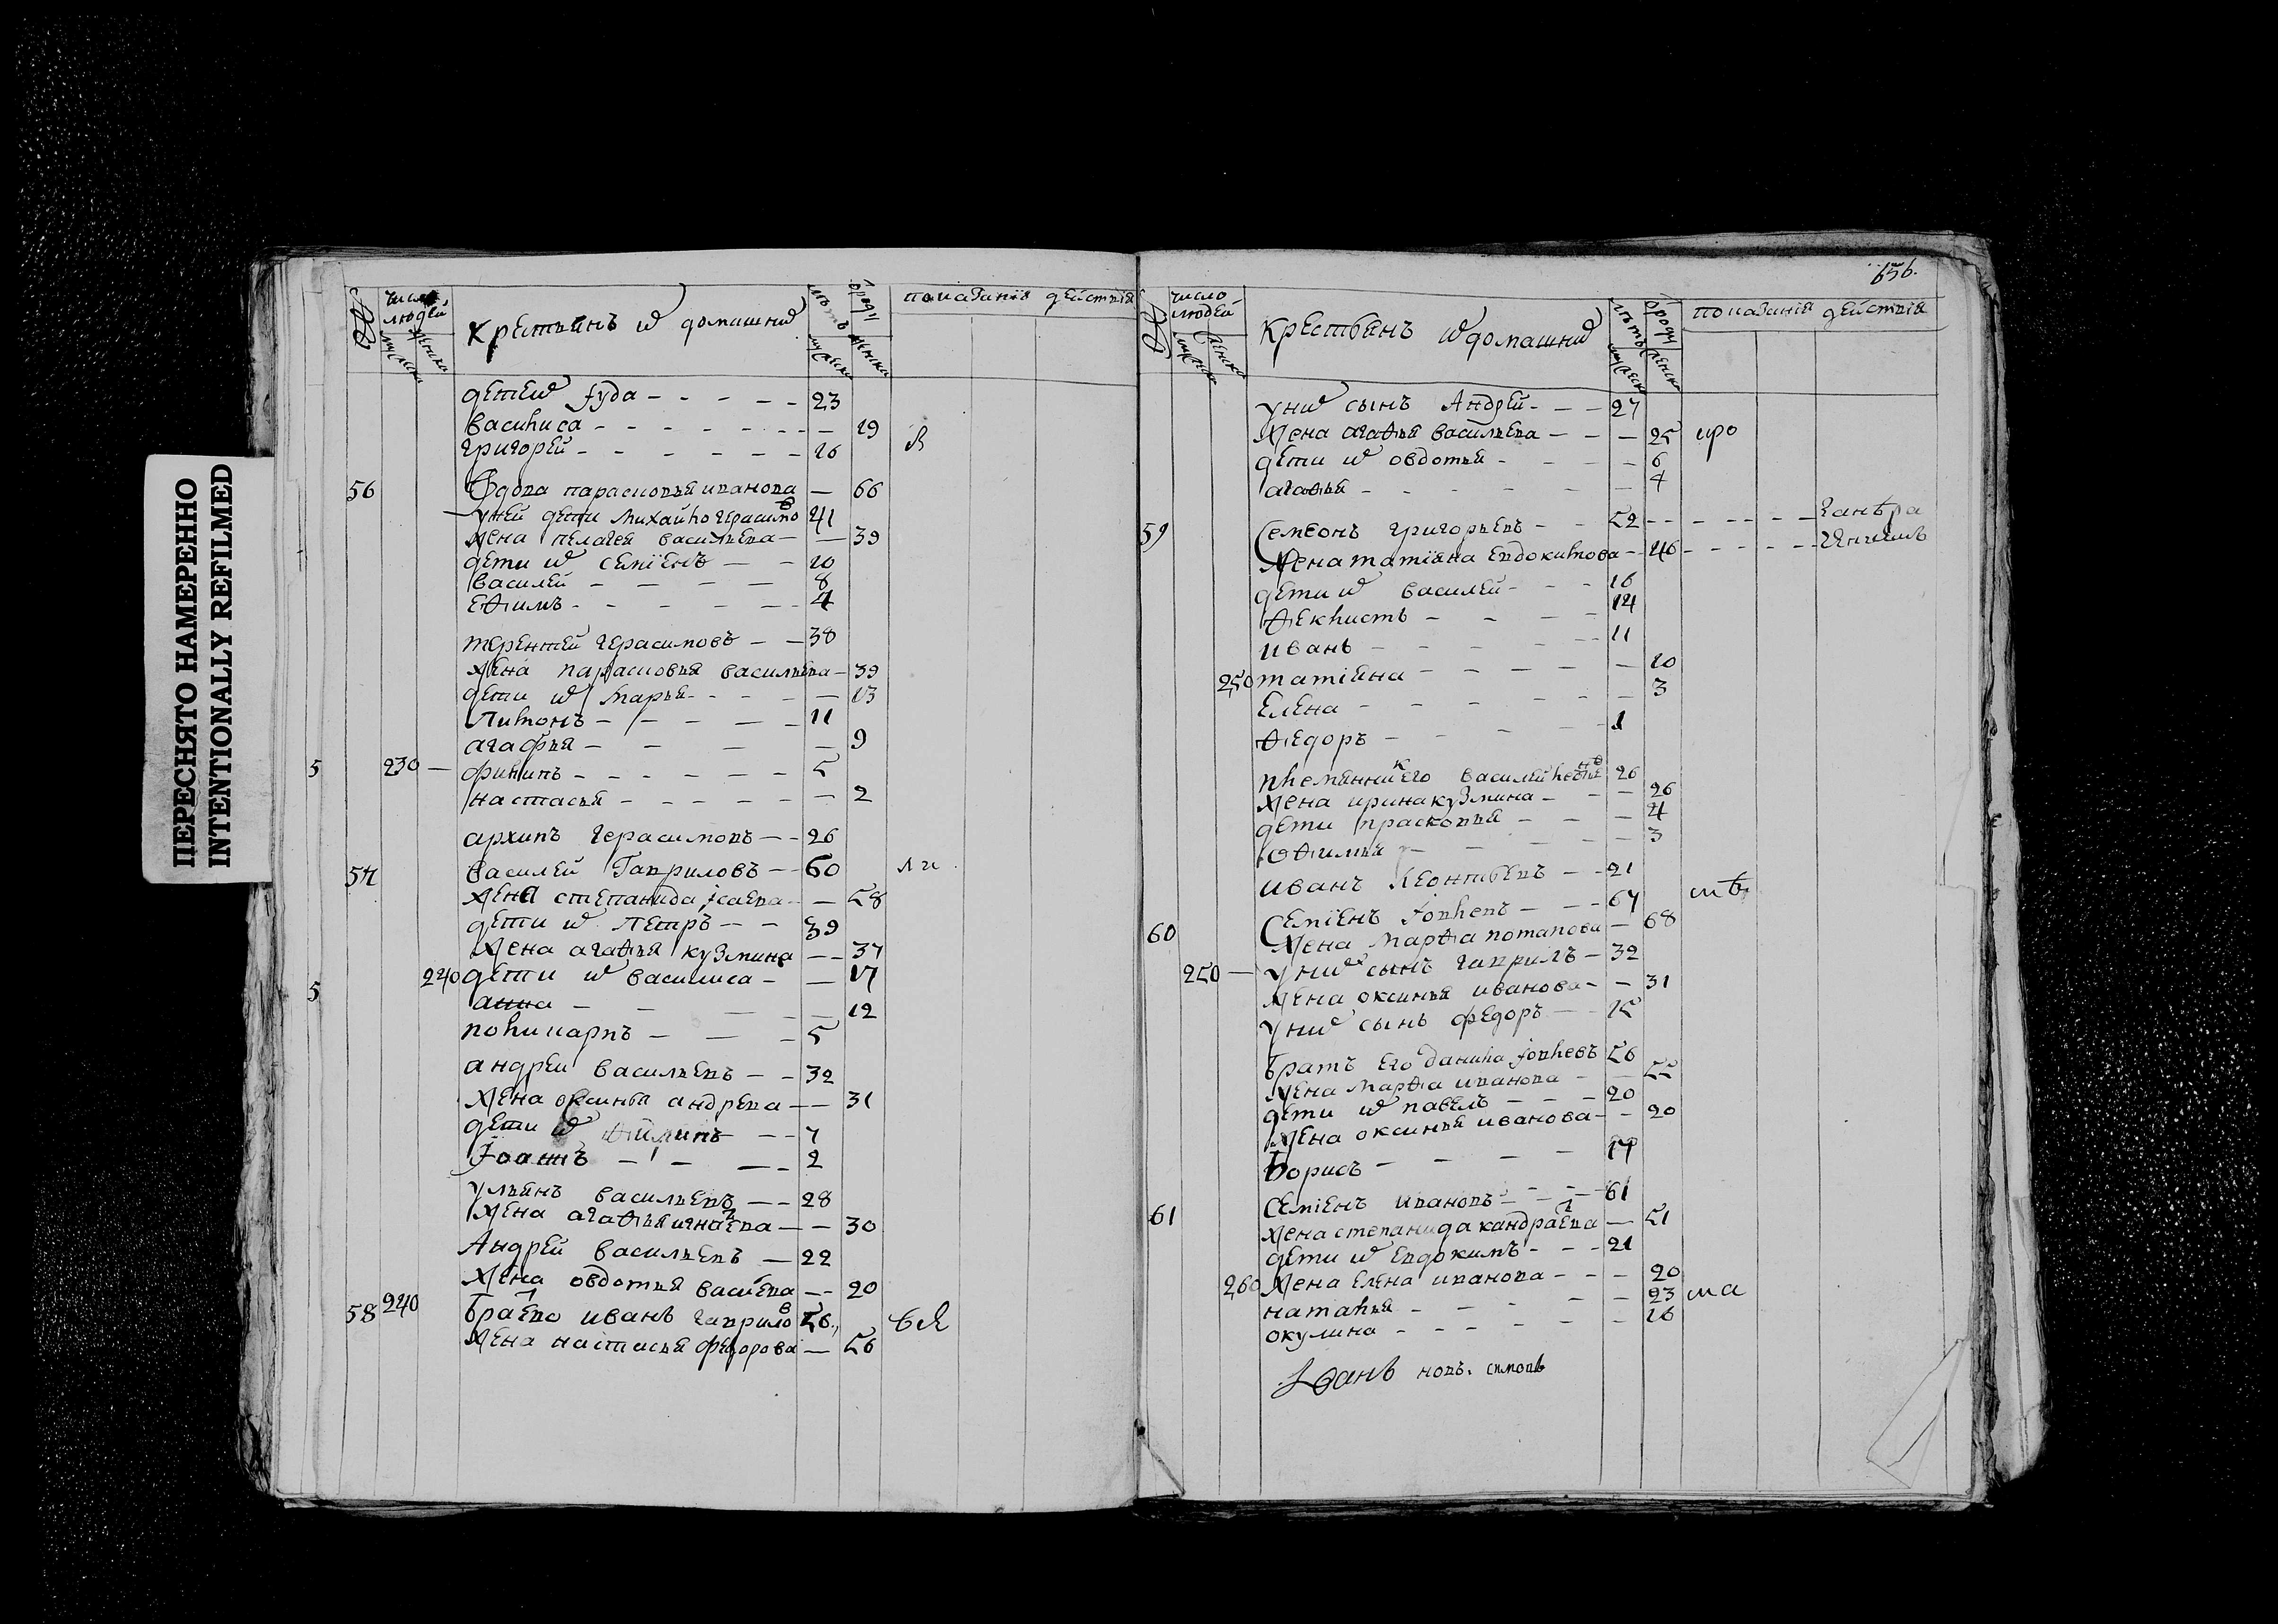 ПЕРЕСНЯТО НАМЕРЕННО
INTENTIONALLY REFILMED
число людей
мужеска женска
крестьянъ и домашних
лѣтъ отроду
мужеска женска
показания действия
детей Іуда - - - - - 23
василиса - - - - - - - - 19
григорей - - - - - - 16
56 вдова парасковья иванова — 66
у ней дети михайло герасимов 41
жена пелагея васильева — — 39
дети их семіенъ — — 10
василей — — — — 8
ефимъ - - - - - - 4
терентей герасимовъ — — 38
жена парасковья васильева — 39
дети их марья - - - — 13
антонъ - - — - 11
агафья — — — — 9
5 230 — филипъ - - - - - - 5
настасья - - - - - - 2
архипъ герасимовъ — - 26
57 василей Гавриловъ — - 60
жена степанида ісаева - — 58
дети их петръ — - 39
жена агафья кузмина — - 37
5 240 дети их василиса - — 17
анна - — — — 12
поликарпъ — — — - 5
андрей васильевъ — - 32
жена оксинья андрева — — 31
дети их филипъ — - 7
Іоаннъ — - — - 2
ульянъ васильевъ — - 28
жена агафья игнатева — — 30
Андрей васильевъ — 22
жена овдотья василева — - 20
58 240 брат ево иванъ гаврилов 56
жена настасья федорова — 56
656.
число людей
мужеска женска
крестьянъ и домашних
лѣтъ отроду
мужеска женска
показания действия
у них сынъ Андрей - - — 27
жена агафья васильева — - — 25
дети их овдотья - - - - 6
агафья - - - - — — 4
59 Семеонъ григорьевъ - - 52
жена татіяна евдокимова — 46
дети их василей - - - 16
феклистъ - - - - 14
иванъ - - - - - 11
250 татіяна - - - - — 10
елена - - - - - - 3
федоръ - - - - - 1
племянник его василей 26
жена ирина кузмина - - — 26
дети прасковья - - — 4
офимья - - - - - 3
иванъ леонтьевъ - - 21
60 Семіенъ Іовлевъ - - - 67
жена марфа потапова — 68
250 — у них сынъ гаврилъ - 32
жена оксинья иванова - - 31
у них сынъ федоръ - - 15
братъ его данила Іовлевъ 56
жена марфа иванова - — 55
дети их павелъ - - - 20
жена оксинья иванова - - 20
борисъ - - - - - 17
61 семіенъ ивановъ - - - 61
жена степанида кандратева — 51
дети их евдокимъ - - - 21
260 жена елена иванова - - — 20
наталья - - - - — 23
окулина - - - - - - 16